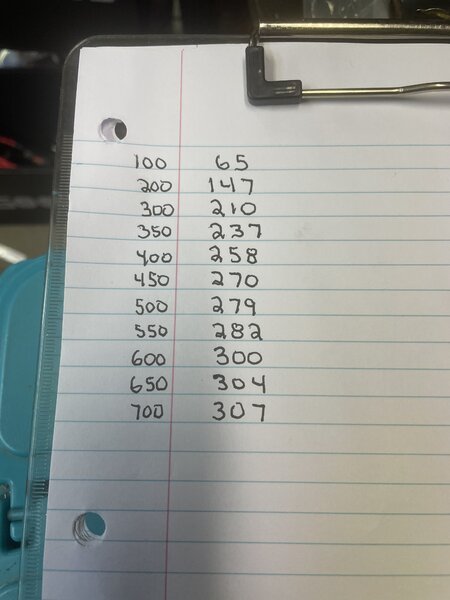 100 65
200 147
300 210
350 237
400 258
450 270
500 279
550 282
600 300
650 304
700 307